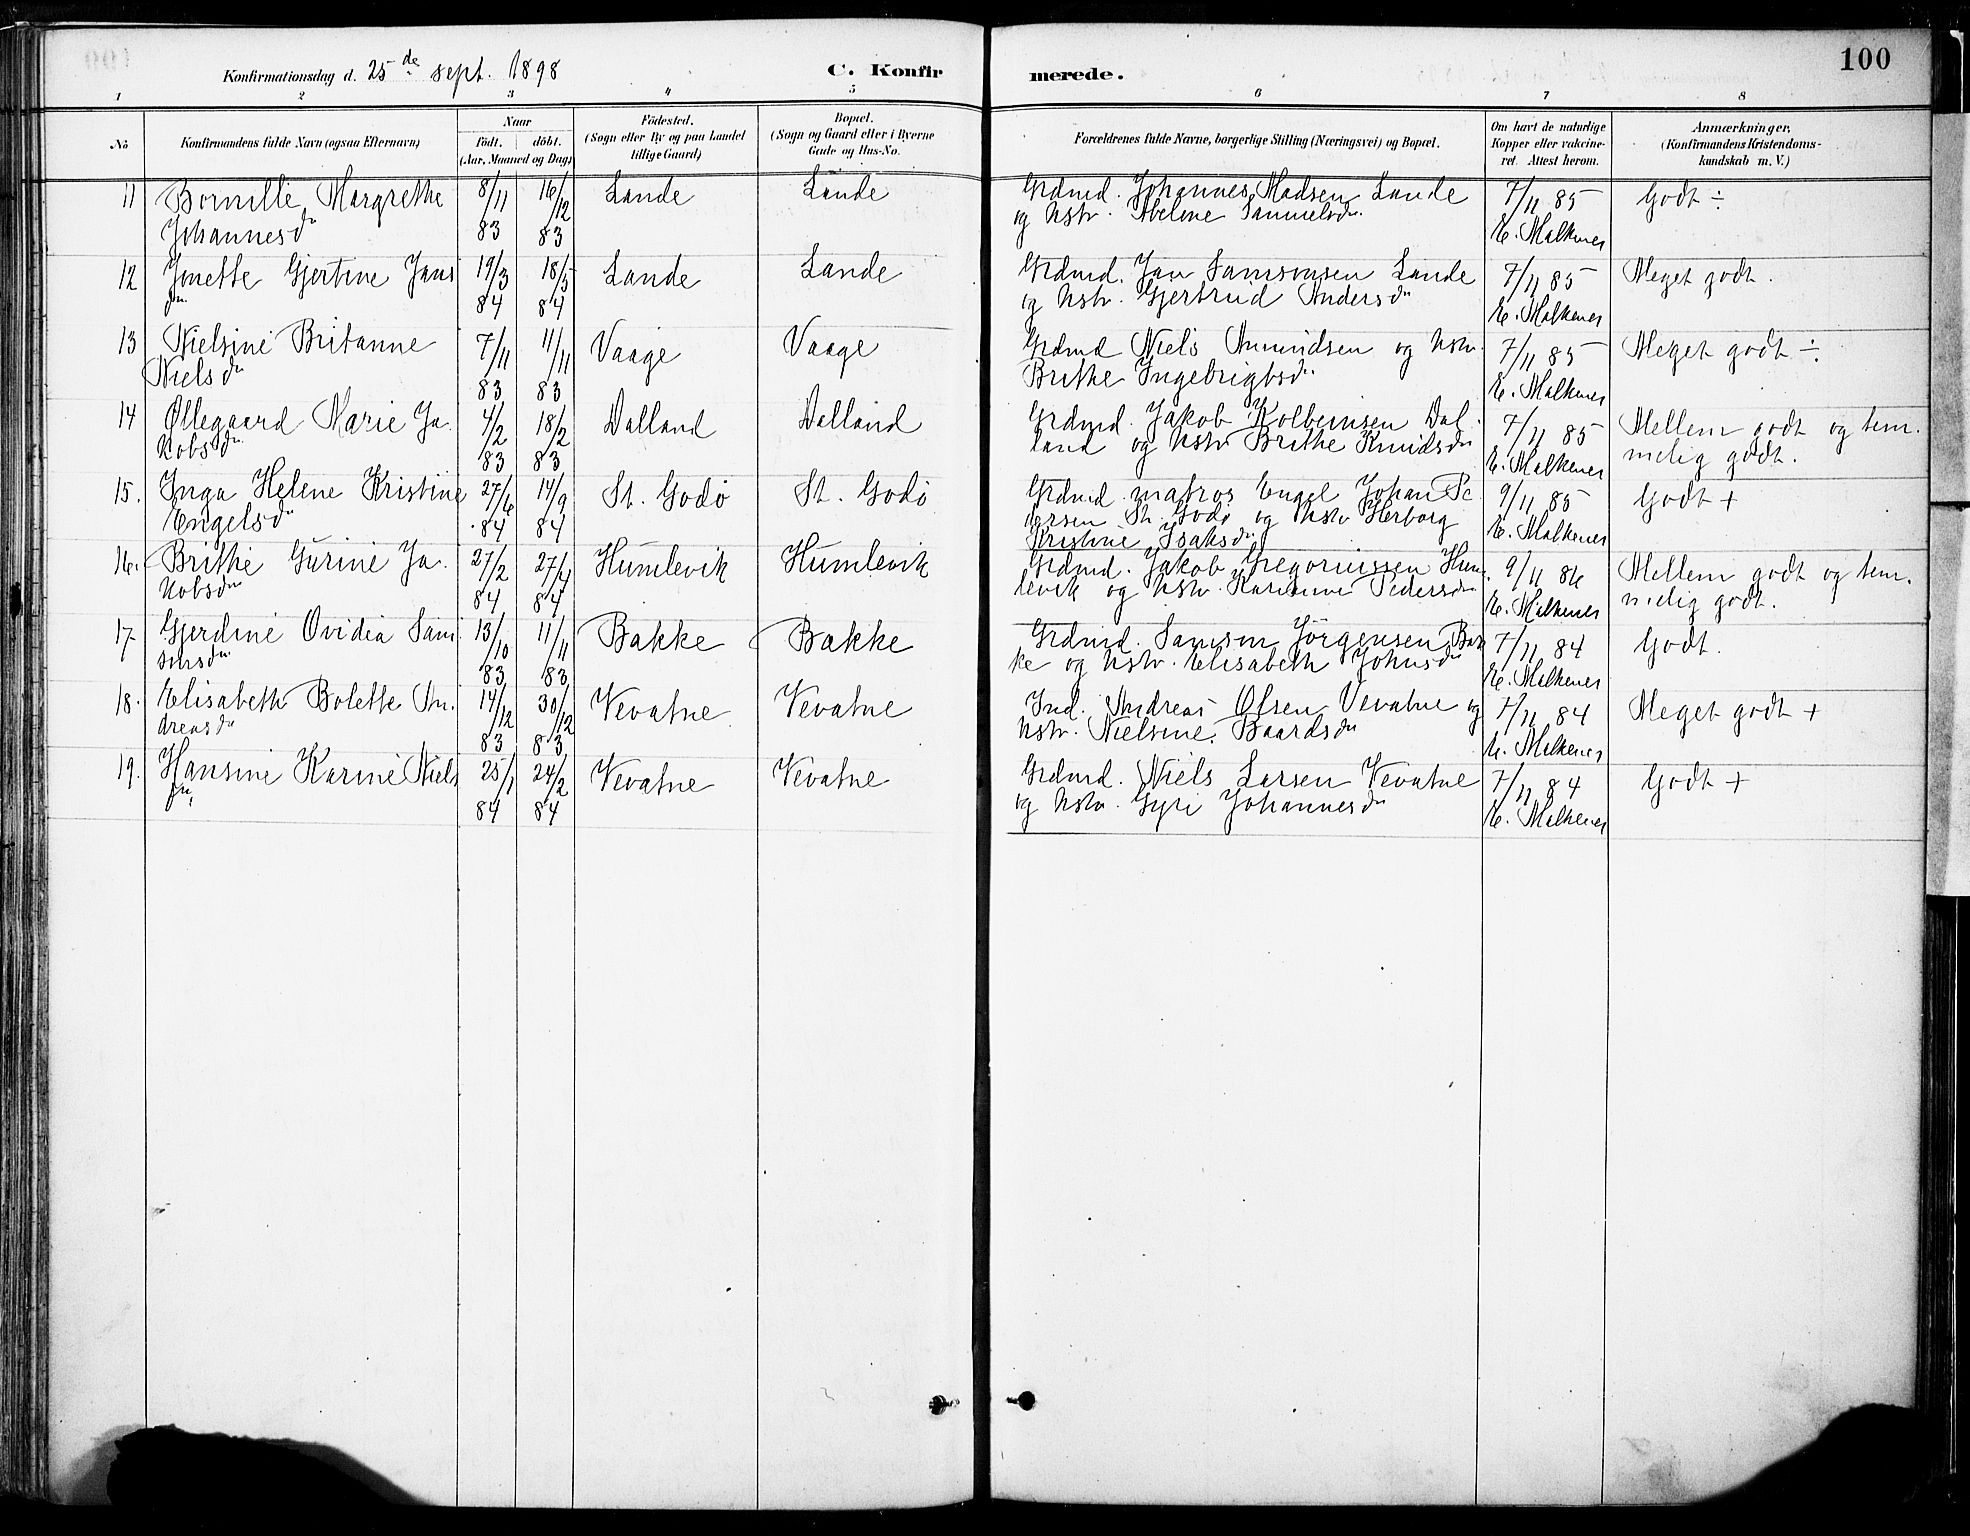 100
Konfirmationsdag d. 25de sept. 1898
C. Konfirmerede.
1 2 3 4 5 6 7 8
No
Konfirmandens fulde Navn (ogsaa Efternavn)
Naar
født. døbt.
(Aar, Maaned og Dag)
Fødested.
(Sogn eller By og paa Landet
tillige Gaard)
Bopæl.
(Sogn og Gaard eller i Byerne
Gade og Hus-No.
Forældrenes fulde Navne, borgerlige Stilling (Næringsvei) og Bopæl.
Om havt de naturlige
Kopper eller vakcine-
ret. Attest herom.
Anmærkninger.
(Konfirmandens Kristendoms-
kundskab m. V.)
11 Bornille Margrethe 8/11 16/12 Lande Lande Grdmd. Johannes Madsen Lande 7/11 85 Godt ÷
Johannesdr 83 83 og Kstr. Abelone Samuelsdr. E. Malkenes
12 Jonette Gjertine Jans 19/3 18/5 Lande Lande Grdmd. Jan Samsonsen Lande 7/11 85 Meget godt.
dr 84 84 og Kstr. Gjertrud Andersdr E. Malkenes
13 Nielsine Britanne 7/11 11/11 Vaage Vaage Grdmd Niels Amundsen og Kstr. 7/11 85 Meget godt ÷
Nielsdr 83 83 Brithe Ingebrigtsdr E. Malkenes
14 Øllegaard Marie Ja- 4/2 18/2 Dalland Dalland Grdmd. Jakob Kolbeinsen Dal- 7/11 85 Mellem godt og tem-
kobsdr 83 83 land og Kstr Brithe Knudsdr E. Malkenes melig godt.
15. Inga Helene Kristine 27/6 14/9 St. Godø St. Godø Grdmd. matros Engel Johan Pe- 9/11 85 Godt +
Engelsdr 84 84 dersen St. Godø og Kstr Herborg E. Malkenes
Kristine Isaksdr
16. Brithe Gurine Ja- 27/2 27/4 Humlevik Humlevik Grdmd. Jakob Gregoriussen Hum- 9/11 86 Mellem godt og tem-
kobsdr 84 84 levik og Kstr. Karianne Pedersdr E. Malkenes melig godt.
17. Gjerdine Ovidia Sam- 13/10 11/11 Bakke Bakke Grdmd. Samson Jørgensen Bak- 7/11 84 Godt.
sonsdr 83 83 ke og Kstr. Elisabeth Johnsdr E. Malkenes
18. Elisabeth Bolette An- 14/12 30/12 Vevatne Vevatne Ind. Andreas Olsen Vevatne og 7/11 84 Meget godt +
dreasdr 83 83 Kstr. Nielsine Baardsdr E. Malkenes
19. Hansine Karine Niels 25/1 24/2 Vevatne Vevatne Grdmd. Niels Larsen Vevatne 7/11 84 Godt +
dr. 84 84 og Kstr. Gyri Johannesdr E. Malkenes